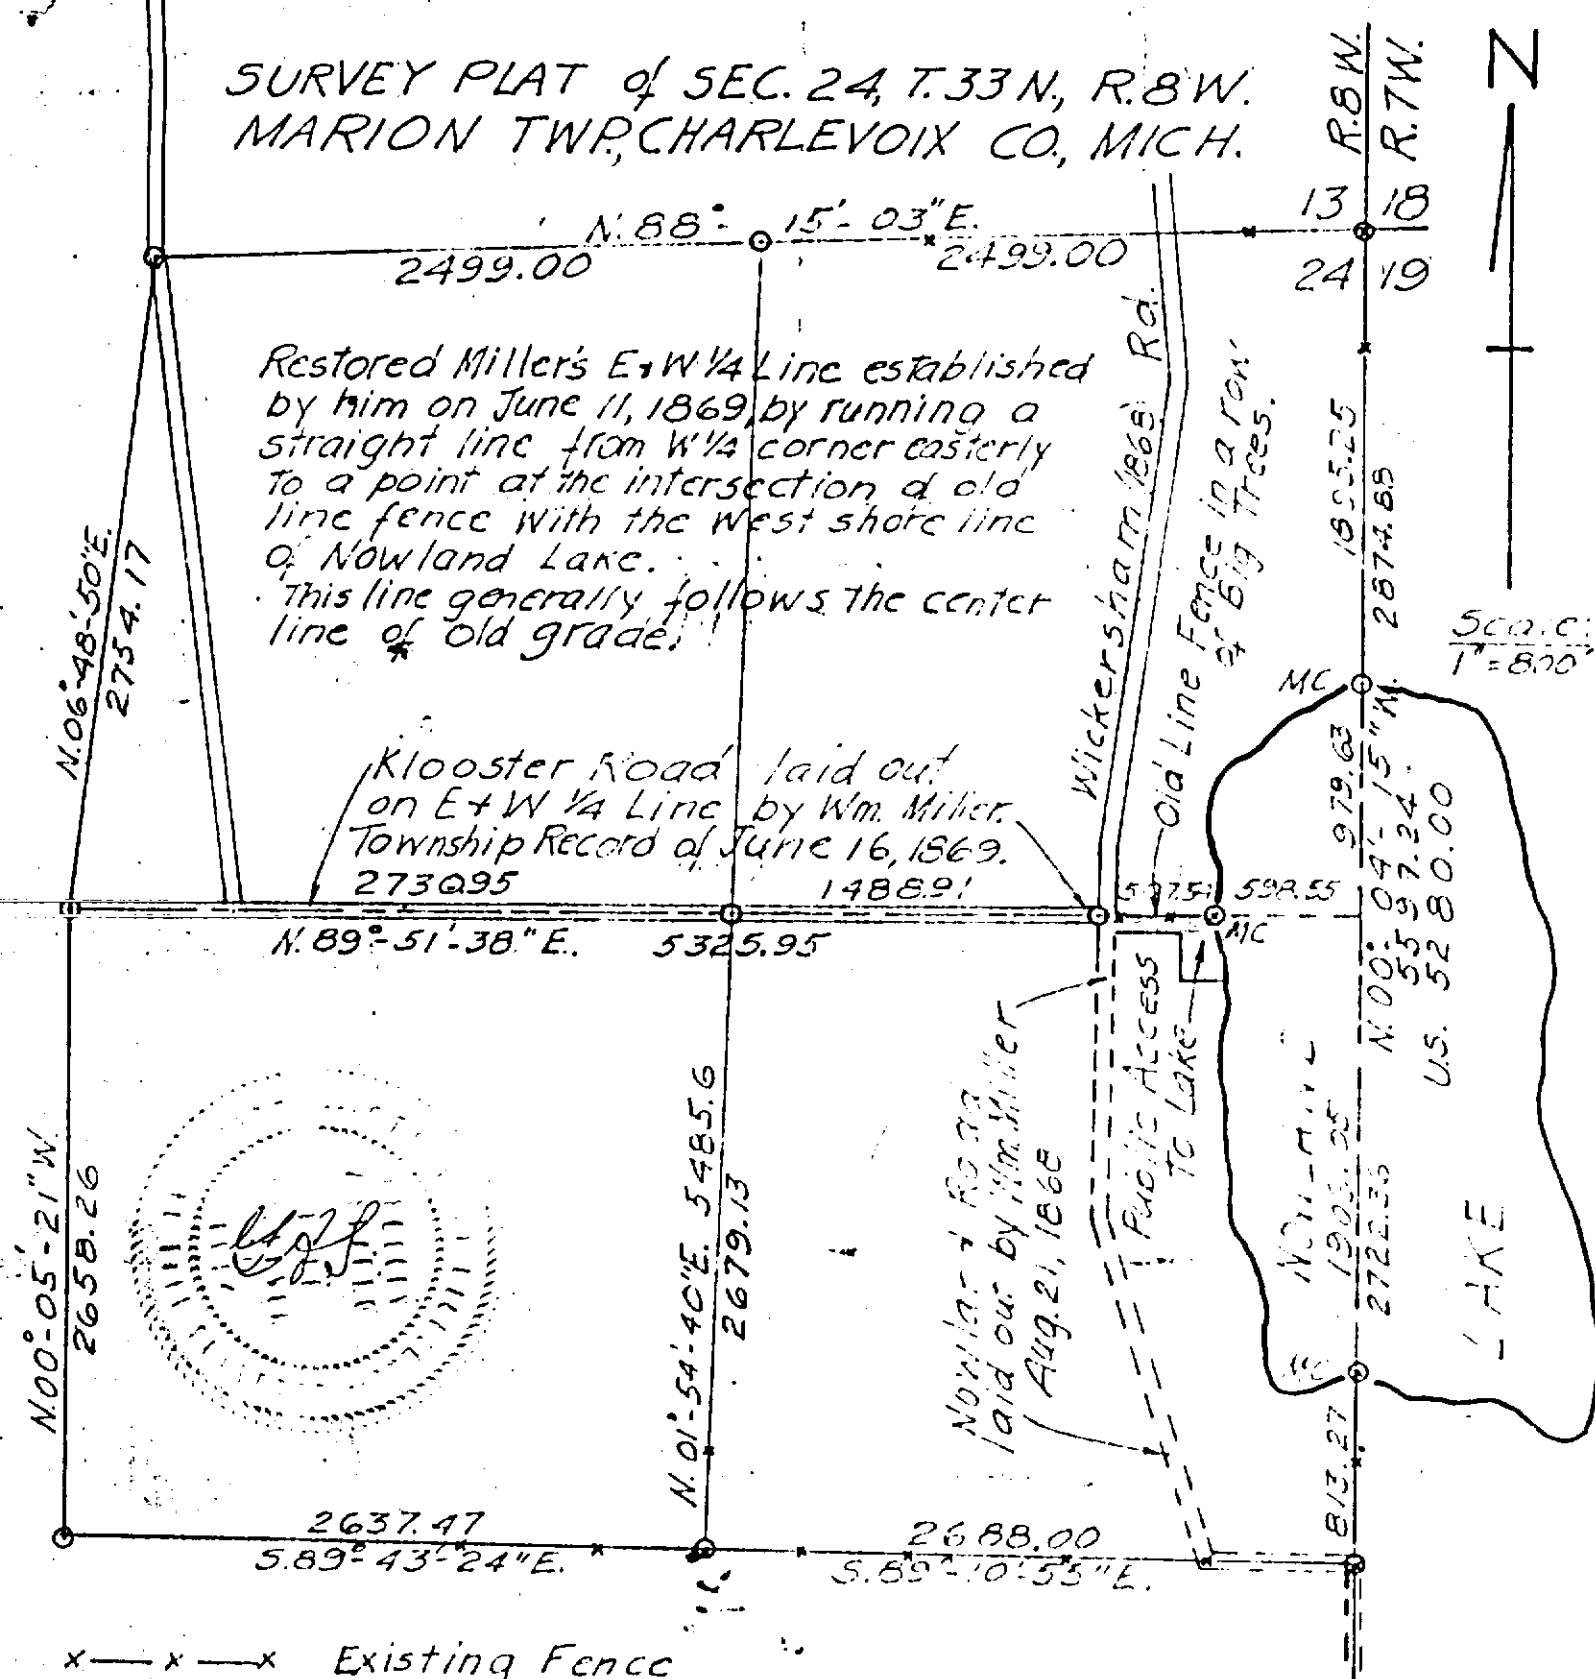 SURVEY PLAT of SEC. 24, T.33 N., R.8 W.
MARION TWP., CHARLEVOIX CO., MICH.
R.8 W.
R.7 W.
N
13 18
24 19
N. 88°- 15'- 03" E.
2499.00
2499.00
Restored Miller's E + W 1/4 Line established
by him on June 11, 1869, by running a
straight line from W 1/4 corner easterly
To a point at the intersection of old
line fence with the west shore line
of Nowland Lake.
This line generally follows the center
line of old grade.
N.06°-48'-50"E.
2754.17
Wickersham 1868 Rd.
Old Line Fence in a row
of Big Trees.
1895.25
2874.88
Scale:
1" = 800'
MC
Klooster Road laid out
on E + W 1/4 Line by Wm. Miller.
Township Record of June 16, 1869.
2730.95
1488.91
598.55
979.63
N. 00°- 04'- 15" W.
5597.24
U.S. 5280.00
N. 89°-51'-38" E.
5325.95
MC
Public Access
To Lake
Nowland Road
laid out by Wm. Miller
Aug. 21, 1868
N.00°-05'-21" W.
2658.26
N. 01°-54'-40"E. 5485.6
2679.13
LAKE
MC
813.27
2637.47
S.89°-43'-24"E.
2688.00
x — x — x Existing Fence